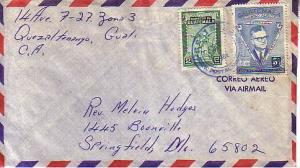 14 Ave. 7-27, Zona 3
Quezaltenango, Guat.
C.A.
CORREO AEREO
VIA AIRMAIL
Rev. Melvin Hodges
1445 Boonville
Springfield, Mo. 65802